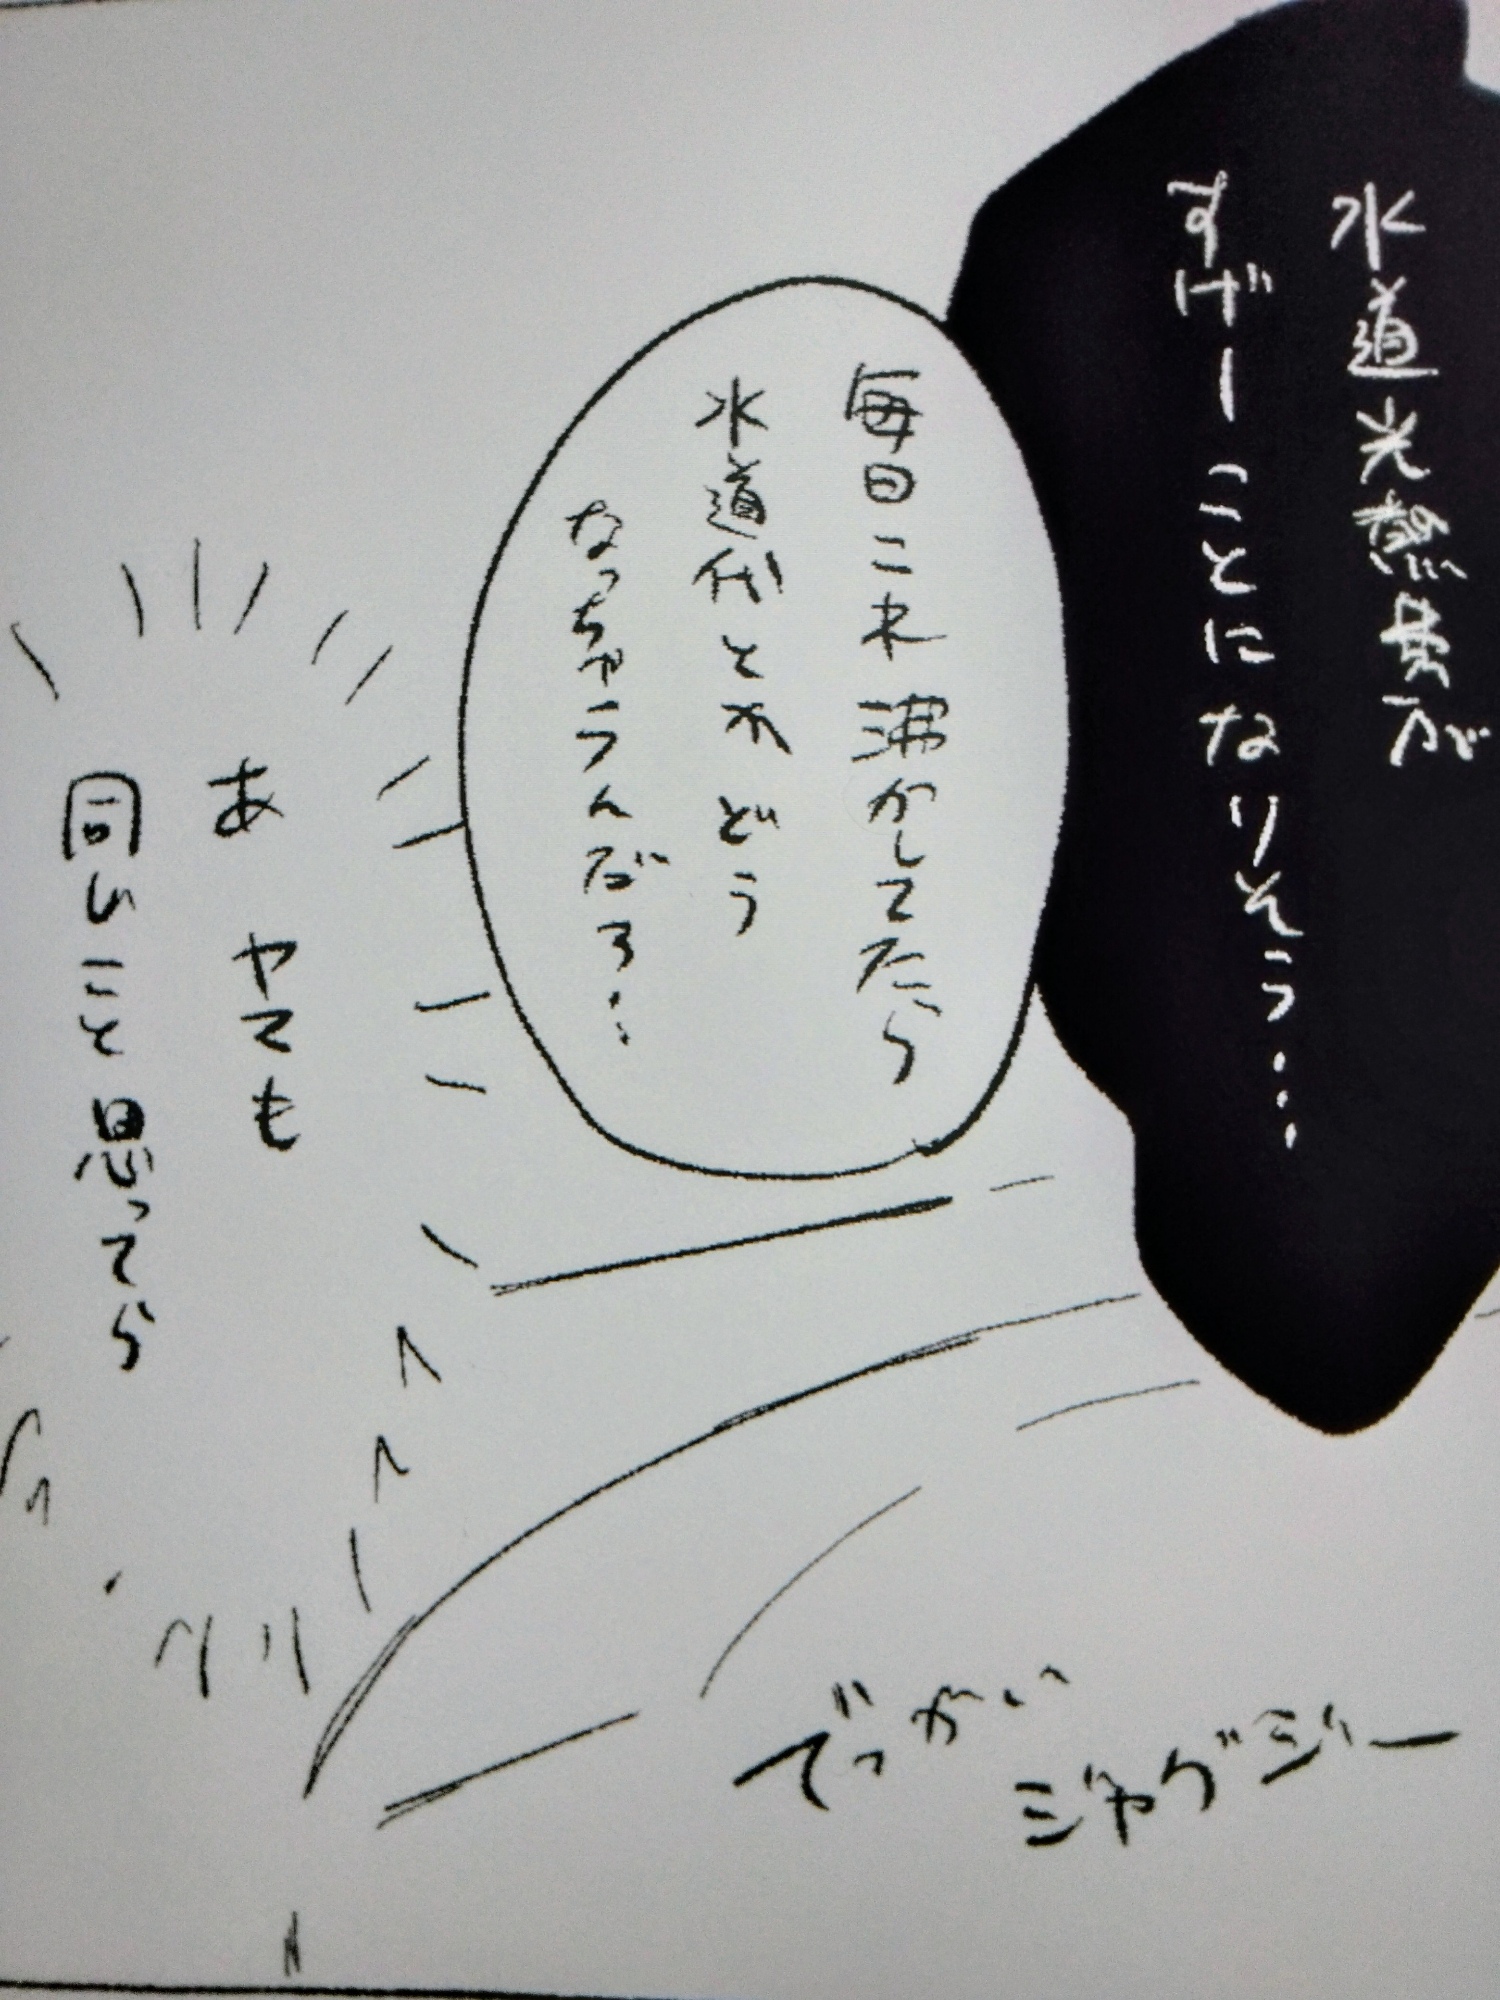 水道光熱費が
すげーことになりそう…
毎日これ沸かしてたら
水道代とかどう
なっちゃうんだろ…
あ ヤマも
同じこと思ってら
でっかい
ジャグジー